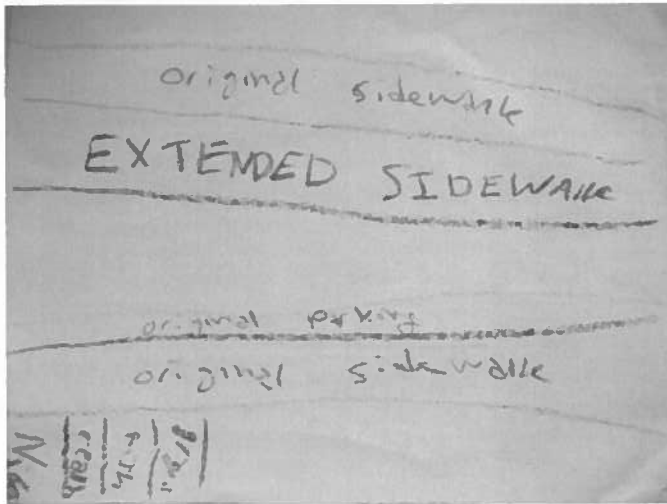 original sidewalk
EXTENDED SIDEWALK
original parking
original sidewalk